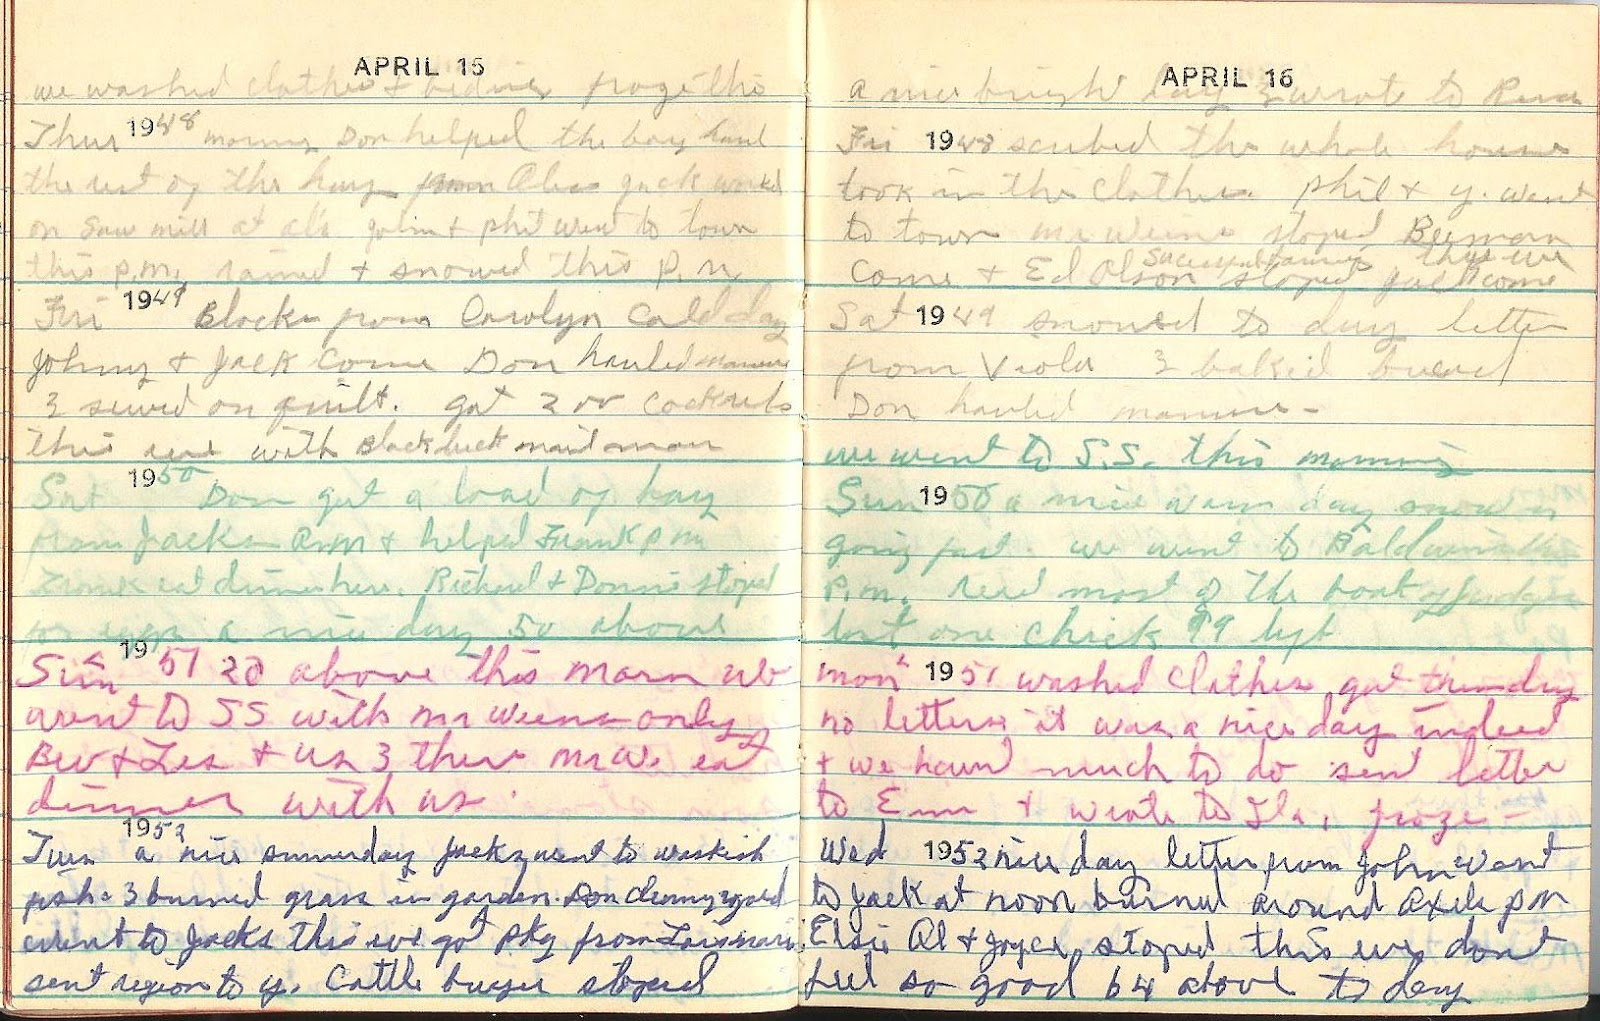 APRIL 15
we washed clothes + froze this
Thur 1948 morning Don helped the boy haul
the rest of the hay from Jack worked
on Saw mill at al's John + phil went to town
this p.m. rained + snowed this p.m
Fri 1949 Blocks from Carolyn Cold day
Johnny + Jack come Don hauled manure
I sewed on quilt. got 200 Cockrels
this eve with mail man
Sat 1950 Don got a load of hay
from Jacks + helped Frank pm
Frank eat dinner here. Richard + Donnie stoped
for eggs a nice day 50 above
Sun 1951 20 above this morn we
went to SS with mr weens only
Bev + Les + us 3 there mr W. eat
dinner with us.
Tues 1952 a nice summerday Jack went to
fish I burned grass in garden. Don yard
went to Jacks this eve got pkg from
sent to y. Cattle buyer stoped
APRIL 16
a nice bright day I wrote to
Fri 1948 scrubed the whole house
took in the clothes. phil + y. went
to town mr weens stoped
Come + Ed Olson stoped Jack come
this eve
Sat 1949 snowed to day letter
from Viola I baked bread
Don hauled manure -
we went to S.S. this morning
Sun 1950 a nice warm day snow is
going fast. we went to Baldwins this
P.m. read most of the book of Judges
lost one chick 99 left
mon 1951 washed clothes got them dry
no letters it was a nice day indeed
+ we havnt much to do sent letter
to Em + wrote to Ila, froze -
Wed 1952 nice day letter from John went
to Jack at noon burned around Axels pm
Elsie Al + Joyce stoped this eve dont
feel so good 64 above to day